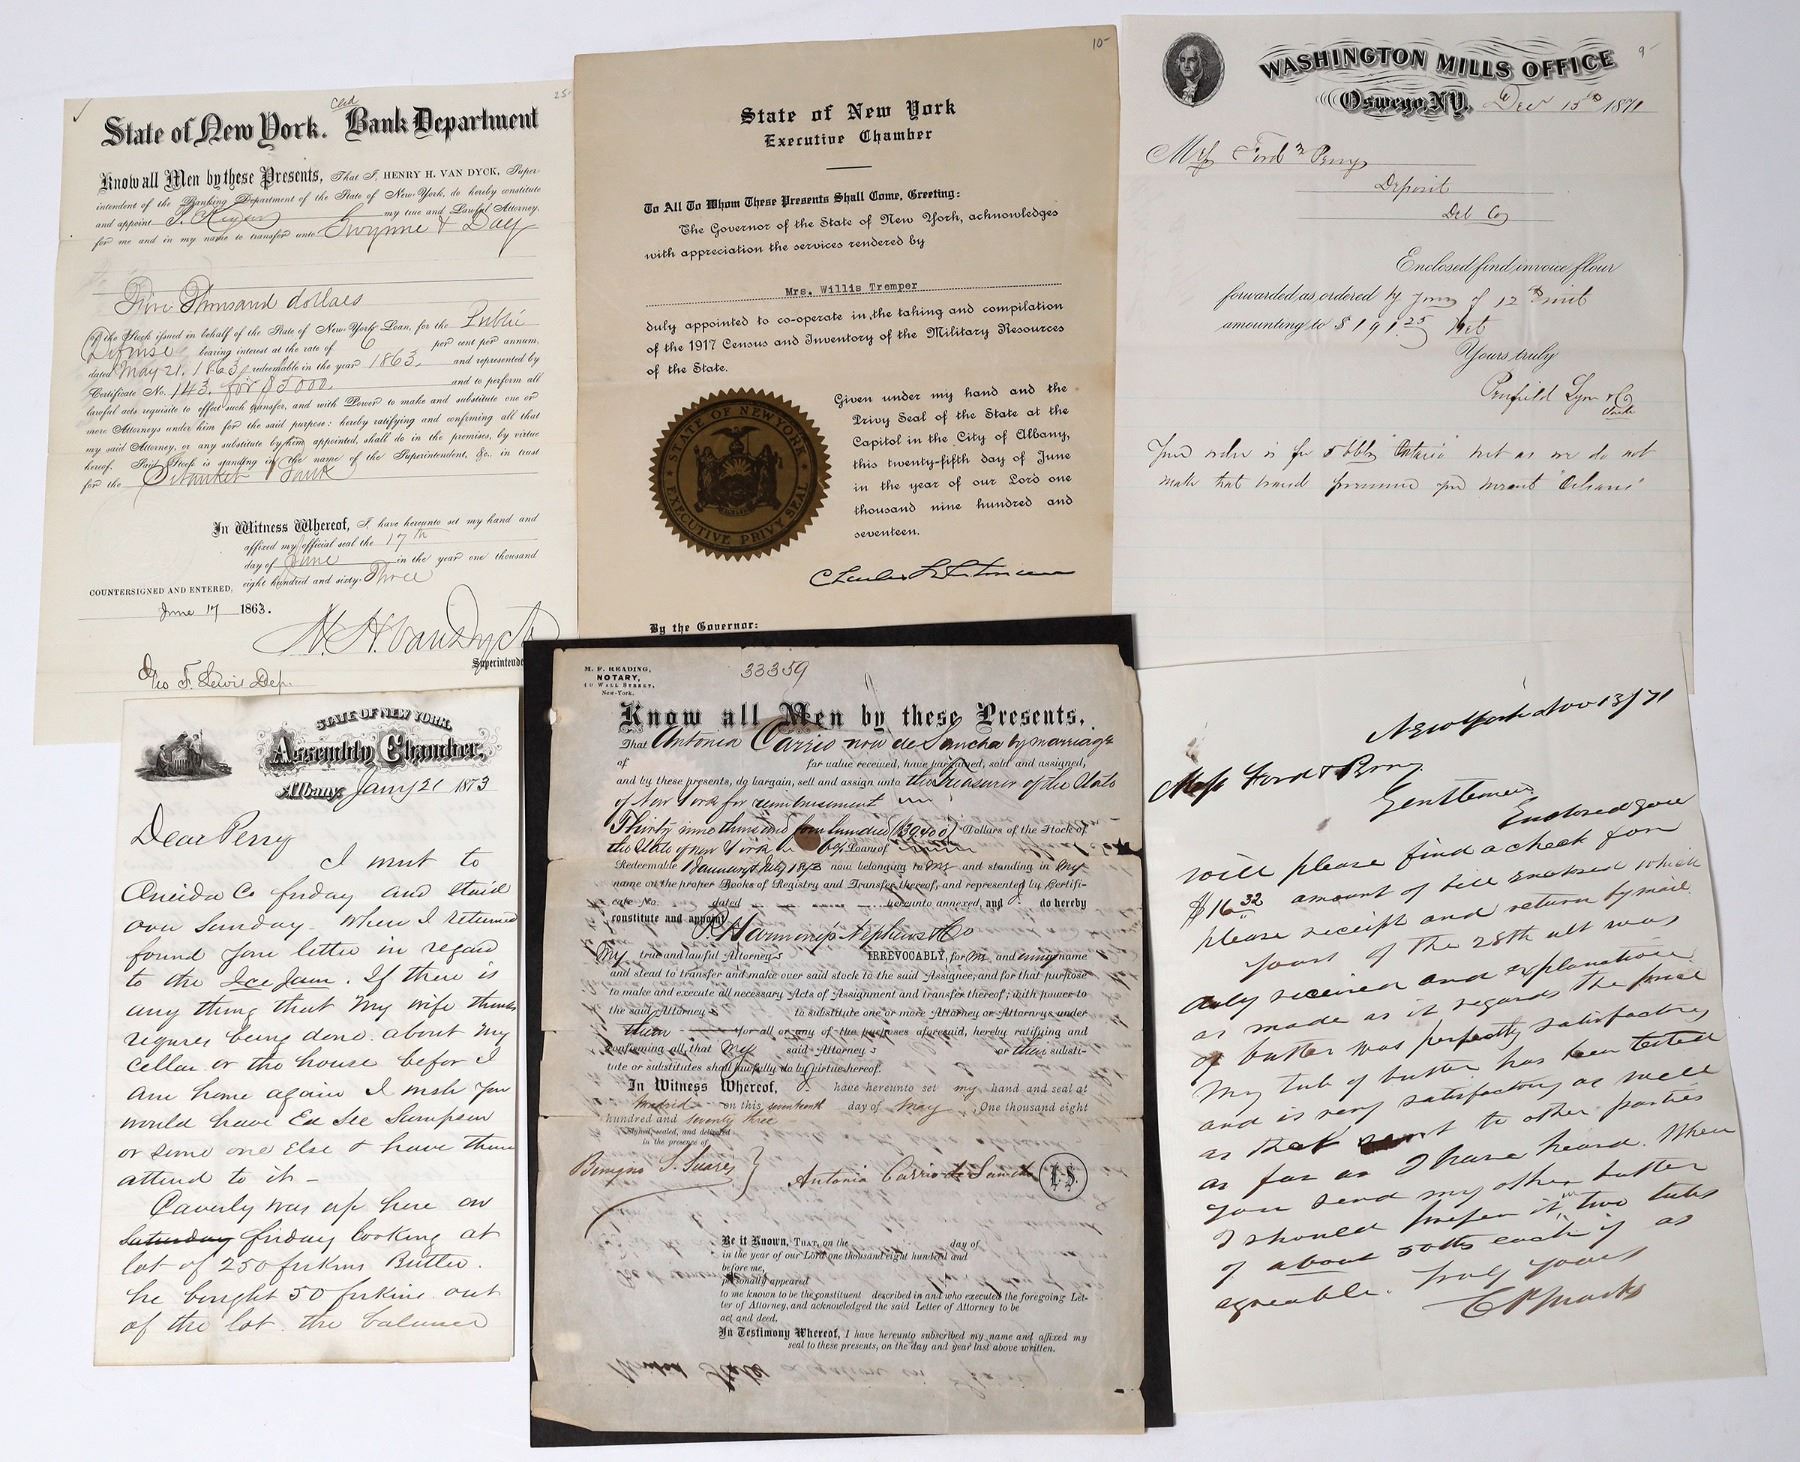 25-
State of New York. Bank Department
Know all Men by these Presents, That I, HENRY H. VAN DYCK, Super-
intendent of the Banking Department of the State of New-York, do hereby constitute
and appoint my true and Lawful Attorney,
for me and in my name to transfer unto Gwynne & Day
Five Thousand dollars
of the Stock issued in behalf of the State of New-York Loan, for the Public
Defense bearing interest at the rate of 6 per cent per annum,
dated May 21, 1863, redeemable in the year 1863, and represented by
Certificate No. 143, for $5000, and to perform all
lawful acts requisite to effect such transfer, and with Power to make and substitute one or
more Attorneys under him for the said purpose: hereby ratifying and confirming all that
my said Attorney, or any substitute by him appointed, shall do in the premises, by virtue
hereof. Said Stock is standing in the name of the Superintendent, &c., in trust
for the Bank
In Witness Whereof, I have hereunto set my hand and
affixed my official seal the 17th
day of June in the year one thousand
eight hundred and sixty-Three
COUNTERSIGNED AND ENTERED,
June 17 1863.
H. H. Van Dyck
Superintende
Geo F. Lewis Dep.
10-
State of New York
Executive Chamber
To All To Whom These Presents Shall Come, Greeting:
The Governor of the State of New York, acknowledges
with appreciation the services rendered by
Mrs. Willis Tremper
duly appointed to co-operate in the taking and compilation
of the 1917 Census and Inventory of the Military Resources
of the State.
Given under my hand and the
Privy Seal of the State at the
Capitol in the City of Albany,
this twenty-fifth day of June
in the year of our Lord one
thousand nine hundred and
seventeen.
STATE OF NEW YORK
EXECUTIVE PRIVY SEAL
Charles S. Whitman
By the Governor:
9-
WASHINGTON MILLS OFFICE
Oswego, N.Y., Dec 15th 1871
Ford & Perry
Deposit
Del Co
Enclosed find invoice flour
forwarded as ordered by yours of 12th inst
amounting to $191.25 Net
Yours truly
Penfield Lyon & Co
Your order is for 5 bbls "Ontario" but as we do not
make that brand presume you meant "Orleans"
STATE OF NEW YORK,
Assembly Chamber,
Albany, Jany 21 1873
Dear Perry
I went to
Oneida Co friday and staid
over Sunday. When I returned
found your letter in regard
to the Ice Jam. If there is
any thing that My wife thinks
requires being done about My
cellar or the house befor I
am home again I wish you
would have Ed See Sampson
or some one Else & have them
attend to it -
Caverly was up here on
Saturday friday looking at
lot of 250 firkins Butter.
he bought 50 firkins out
of the lot. the balance
M. F. READING,
NOTARY,
WALL STREET,
New-York.
33359
Know all Men by these Presents,
That Antonia Carrio now de Sancha by marriage
of for value received, have bargained, sold and assigned,
and by these presents, do bargain, sell and assign unto the Treasurer of the State
of New York for reimbursement
Thirty nine thousand four hundred ($39,400) Dollars of the Stock of
the State of New York 6% Loan of
Redeemable January & July 1873 now belonging to Me and standing in My
name on the proper Books of Registry and Transfer thereof, and represented by Certifi-
cate No. dated hereunto annexed, and I do hereby
constitute and appoint
P. Harmony's Nephews & Co
My true and lawful Attorneys IRREVOCABLY, for Me and in my name
and stead to transfer and make over said stock to the said Assignee; and for that purpose
to make and execute all necessary Acts of Assignment and transfer thereof; with power to
the said Attorneys to substitute one or more Attorney or Attorneys under
them for all or any of the purposes aforesaid, hereby ratifying and
confirming all that My said Attorneys or their substi-
tute or substitutes shall lawfully do by virtue hereof.
In Witness Whereof, I have hereunto set my hand and seal at
Madrid on this seventeenth day of May One thousand eight
hundred and seventy three
Signed, sealed, and delivered
in the presence of
Benigno S. Suarez
Antonia Carrio de Sancha L.S.
Be it Known, THAT, on the day of
in the year of our Lord one thousand eight hundred and
before me,
personally appeared
to me known to be the constituent described in and who executed the foregoing Let-
ter of Attorney, and acknowledged the said Letter of Attorney to be
act and deed.
In Testimony Whereof, I have hereunto subscribed my name and affixed my
seal to these presents, on the day and year last above written.
New York Nov 13/71
Mess Ford & Perry
Gentlemen
Enclosed you
will please find a check for
$16 32 amount of bill enclosed which
please receipt and return by mail.
Yours of the 28th ult was
duly received and explanation
as made as it regards the price
of butter was perfectly satisfactory
My tub of butter has been tested
and is very satisfactory as well
as that sent to other parties
as far as I have heard. When
you send my other butter
I should prefer it in two tubs
of about 50lbs each if as
agreeable. Truly yours